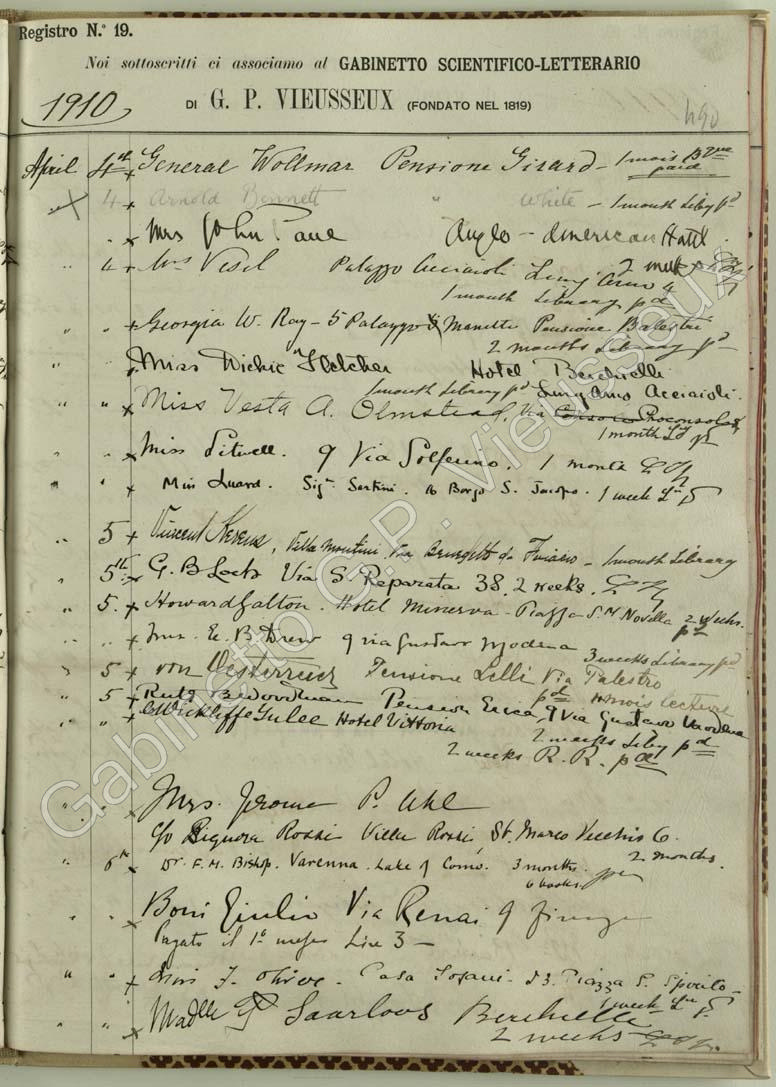 Registro N.º 19.
Noi sottoscritti ci associamo al GABINETTO SCIENTIFICO-LETTERARIO
1910
DI G. P. VIEUSSEUX (FONDATO NEL 1819)
490
April 4th General Wollmar Pensione Girard - 1 mois
paid
4 Arnold Bennett " White - 1 month Liby pd
Mrs John Anglo-American Hotel.
4 Mrs Palazzo Acciaioli Lung Arno 4
1 month Library pd
Georgia W. Ray - 5 Palazzo Pensione Balestri
2 months Library pd
Miss Fletcher Hotel Berchielli
1 month Library pd Lung Arno Acciaioli.
Miss Vesta A. Olmstead, Via Proconsolo
1 month
Miss Sitwell. 9 Via Solferino. 1 month
Miss Luard. Sigr Sartini. 16 Borgo S. Jacopo. 1 week
5 Vincent Villa Via Benedetto da - 1 month Library
5th G. B Lock Via S. Reparata 38. 2 weeks.
5. Howard Galton. Hotel Minerva - Piazza S. M Novella 2 weeks.
pd
Mrs. E. B Drew 9 via Gustavo Modena
3 weeks Library pd
5 von Oesterreich Pensione Lelli Via Palestro
pd 1 mois lecture
5 Ruth B. Woodman Pension Erica, 9 Via Gustavo Modena
C Wickliffe Yulee Hotel Vittoria
2 weeks Liby pd
2 weeks R. R. pd
Mrs. Jerome P.
c/o Signora Rossi Villa Rossi, St. Marco Vecchio 6.
2 months.
6th Dr. F. M. Bishop. Varenna. Lake of Como. 3 months.
6 books.
Boni Giulio Via Renai 9 Firenze
Pagato il 1º mese Lire 3 -
Miss J. Olive. Casa - 23. Piazza S. Spirito -
1 week
Madlle Saarloos Berchielli
2 weeks
Gabinetto G.P. Vieusseux